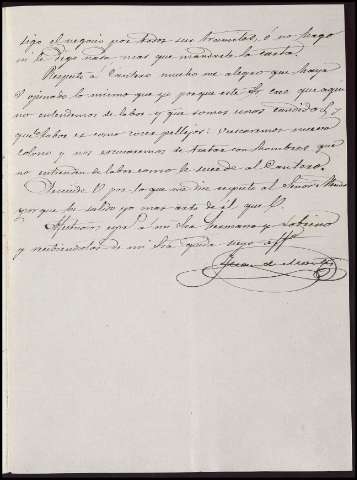 sigo el negocio por todos sus tramites, ó no hago
ni le digo nada mas que mandarle la carta.
Respecto à Cantero mucho me alegro que haya
V. opinado lo mismo que yo porque este Sr. cree que aqui
no entendemos de labor y que somos unos candidos, y
que labor es como coser pellejos: buscaremos nuevo
colono y nos escusaremos de tratar con hombres que
no entienden de labor como le sucede al Cantero.
Descuide V. por lo que me dice respecto al Señor
porque he salido yo mas arte de él que V.
Afectuosas espres. à mi Sra. hermana y Sobrino
y recibiendolos de mi Sra. queda suyo affmo.
Juan de